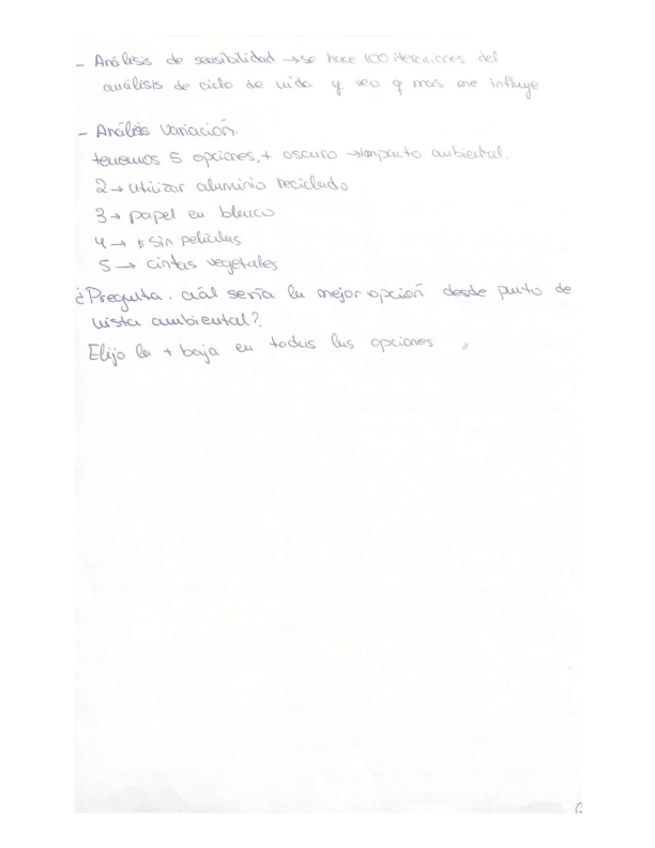 - Análisis de sensibilidad → se hace 100 iteraciones del
análisis de ciclo de vida y veo q mas me influye
- Análisis Variación.
tenemos 5 opciones, + oscuro → impacto ambiental.
2 → utilizar aluminio reciclado
3 → papel en blanco
4 → sin películas
5 → cintas vegetales
¿Pregunta. cuál sería la mejor opción desde punto de
vista ambiental?
Elijo la + baja en todas las opciones